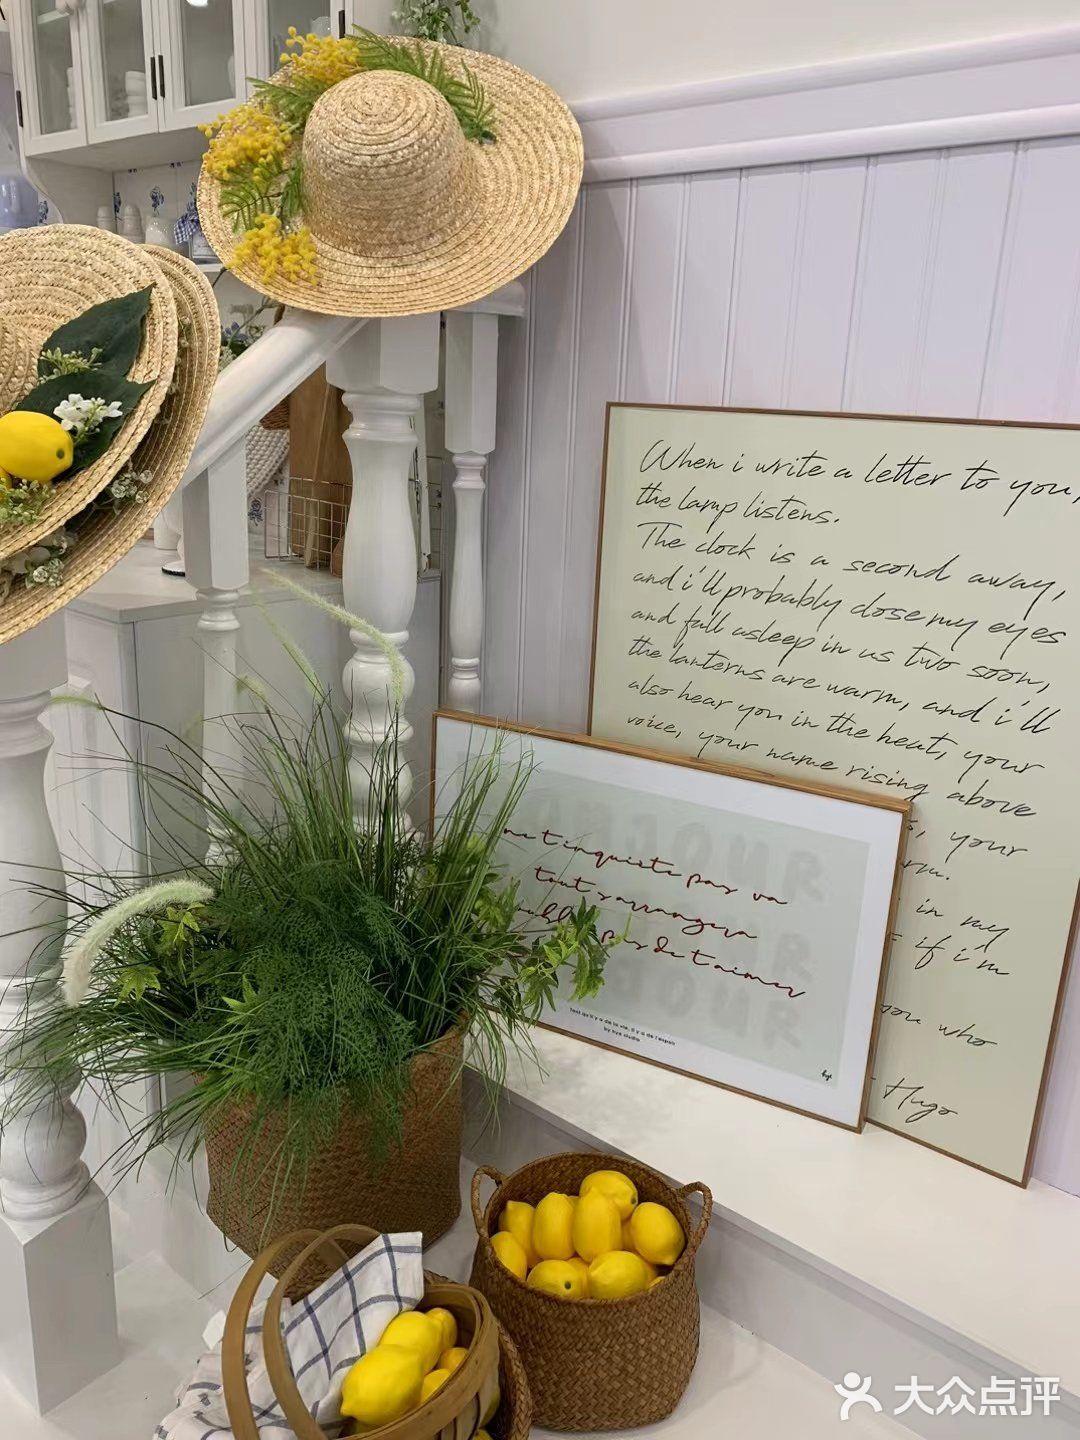 When i write a letter to you,
the lamp listens.
The clock is a second away,
and i'll probably close my eyes
and fall asleep in us two soon,
the lanterns are warm, and i'll
also hear you in the heat, your
voice, your name rising above
, your
in my
if i'm
you who
Hugo
ne t'inquiete pas va
tout s'arrangera
pas de t'aimer
Tant qu'il y a de la vie, il y a de l'espoir
by hye studio
大众点评